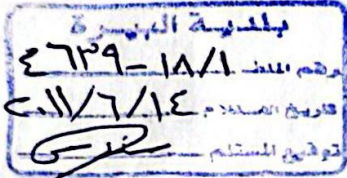 بلدية البيرة
رقم الملف ٤٦٣٩-١٨/١
تاريخ ٢٠١١/٦/١٤
توقيع المستلم